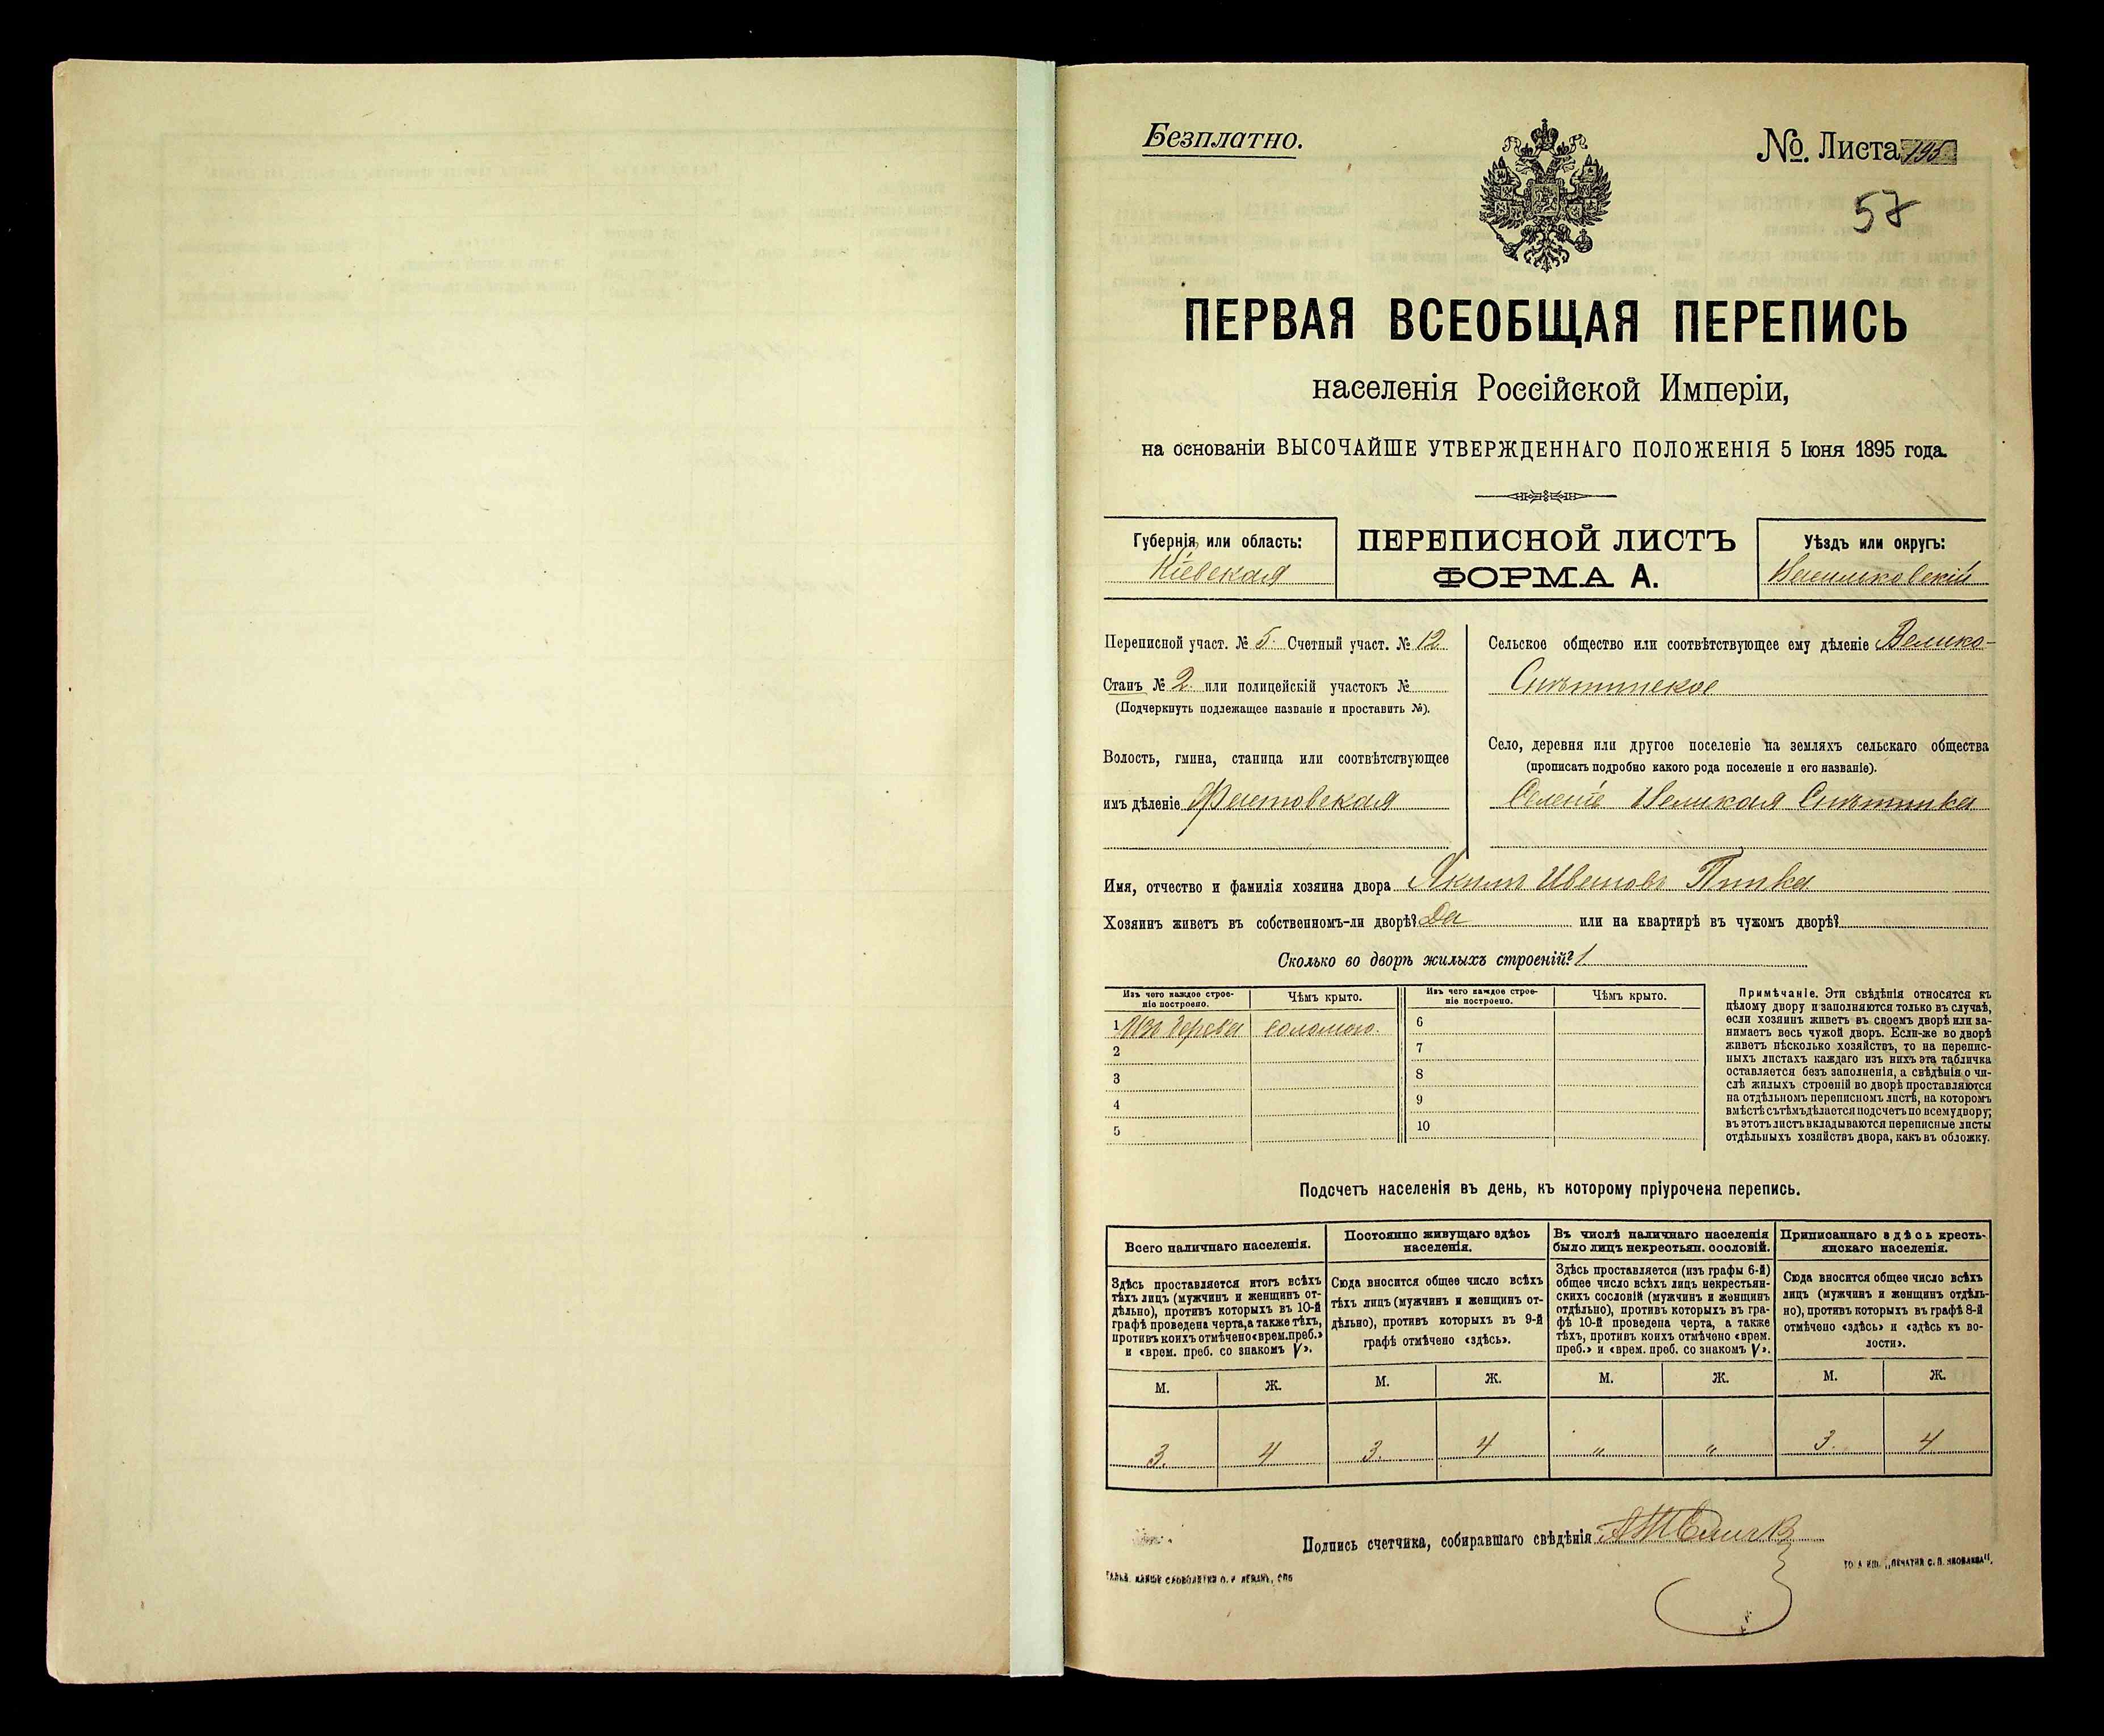 Безплатно.
№. Листа 195
57
ПЕРВАЯ ВСЕОБЩАЯ ПЕРЕПИСЬ
населенія Россійской Имперіи,
на основаніи ВЫСОЧАЙШЕ УТВЕРЖДЕННАГО ПОЛОЖЕНІЯ 5 Іюня 1895 года.
Губернія, или область:
Кіевская
ПЕРЕПИСНОЙ ЛИСТЪ
ФОРМА А.
Уѣздъ или округъ:
Васильковскій
Переписной участ. № 5. Счетный участ. № 12
Станъ № 2. или полицейскій участокъ №
(Подчеркнуть подлежащее названіе и проставить №).
Волость, гмина, станица или соотвѣтствующее
имъ дѣленіе Фастовская
Сельское общество или соотвѣтствующее ему дѣленіе Велико-
Снѣтинское
Село, деревня или другое поселеніе на земляхъ сельскаго общества
(прописать подробно какого рода поселеніе и его названіе).
Селеніе Великая Снѣтинка
Имя, отчество и фамилія хозяина двора Якимъ Ивановъ
Хозяинъ живетъ въ собственномъ-ли дворѣ? Да или на квартирѣ въ чужомъ дворѣ?
Сколько во дворѣ жилыхъ строеній? 1
Изъ чего каждое строе-
ніе построено.
Чѣмъ крыто.
Изъ чего каждое строе-
ніе построено.
Чѣмъ крыто.
1 Изъ дерева соломою.
2
3
4
5
6
7
8
9
10
Примѣчаніе. Эти свѣдѣнія относятся къ
цѣлому двору и заполняются только въ случаѣ,
если хозяинъ живетъ въ своемъ дворѣ или за-
нимаетъ весь чужой дворъ. Если-же во дворѣ
живетъ нѣсколько хозяйствъ, то на перепис-
ныхъ листахъ каждаго изъ нихъ эта табличка
оставляется безъ заполненія, а свѣдѣнія о чи-
слѣ жилыхъ строеній во дворѣ проставляются
на отдѣльномъ переписномъ листѣ, на которомъ
вмѣстѣ съ тѣмъ дѣлается подсчетъ по всему двору;
въ этотъ листъ вкладываются переписные листы
отдѣльныхъ хозяйствъ двора, какъ въ обложку.
Подсчетъ населенія въ день, къ которому пріурочена перепись.
Всего наличнаго населенія.
Здѣсь проставляется итогъ всѣхъ
тѣхъ лицъ (мужчинъ и женщинъ от-
дѣльно), противъ которыхъ въ 10-й
графѣ проведена черта, а также тѣхъ,
противъ коихъ отмѣчено «врем. преб.»
и «врем. преб. со знакомъ V».
Постоянно живущаго здѣсь
населенія.
Сюда вносится общее число всѣхъ
тѣхъ лицъ (мужчинъ и женщинъ от-
дѣльно), противъ которыхъ въ 9-й
графѣ отмѣчено «здѣсь».
Въ числѣ наличнаго населенія
было лицъ некрестьян. сословій.
Здѣсь проставляется (изъ графы 6-й)
общее число всѣхъ лицъ некрестьян-
скихъ сословій (мужчинъ и женщинъ
отдѣльно), противъ которыхъ въ гра-
фѣ 10-й проведена черта, а также
тѣхъ, противъ коихъ отмѣчено «врем.
преб.» и «врем. преб. со знакомъ V».
Приписаннаго здѣсь кресть-
янскаго населенія.
Сюда вносится общее число всѣхъ
лицъ (мужчинъ и женщинъ отдѣль-
но), противъ которыхъ въ графѣ 8-й
отмѣчено «здѣсь» и «здѣсь къ во-
лости».
М. Ж. М. Ж. М. Ж. М. Ж.
3. 4 3. 4 „ „ 3. 4
Подпись счетчика, собиравшаго свѣдѣнія